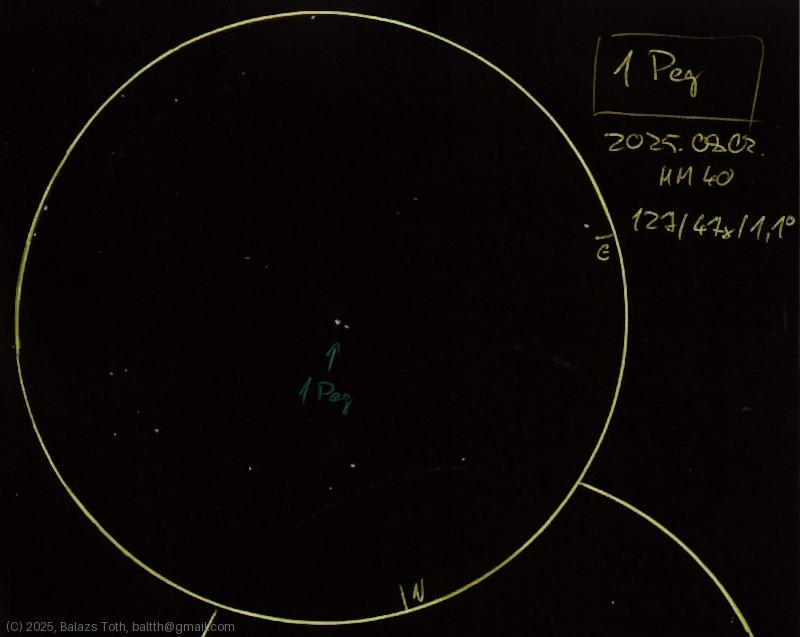 1 Peg
2025.08.02.
MM 40
127/47x/1,1°
E
1 Peg
N
(C) 2025, Balazs Toth, baltth@gmail.com